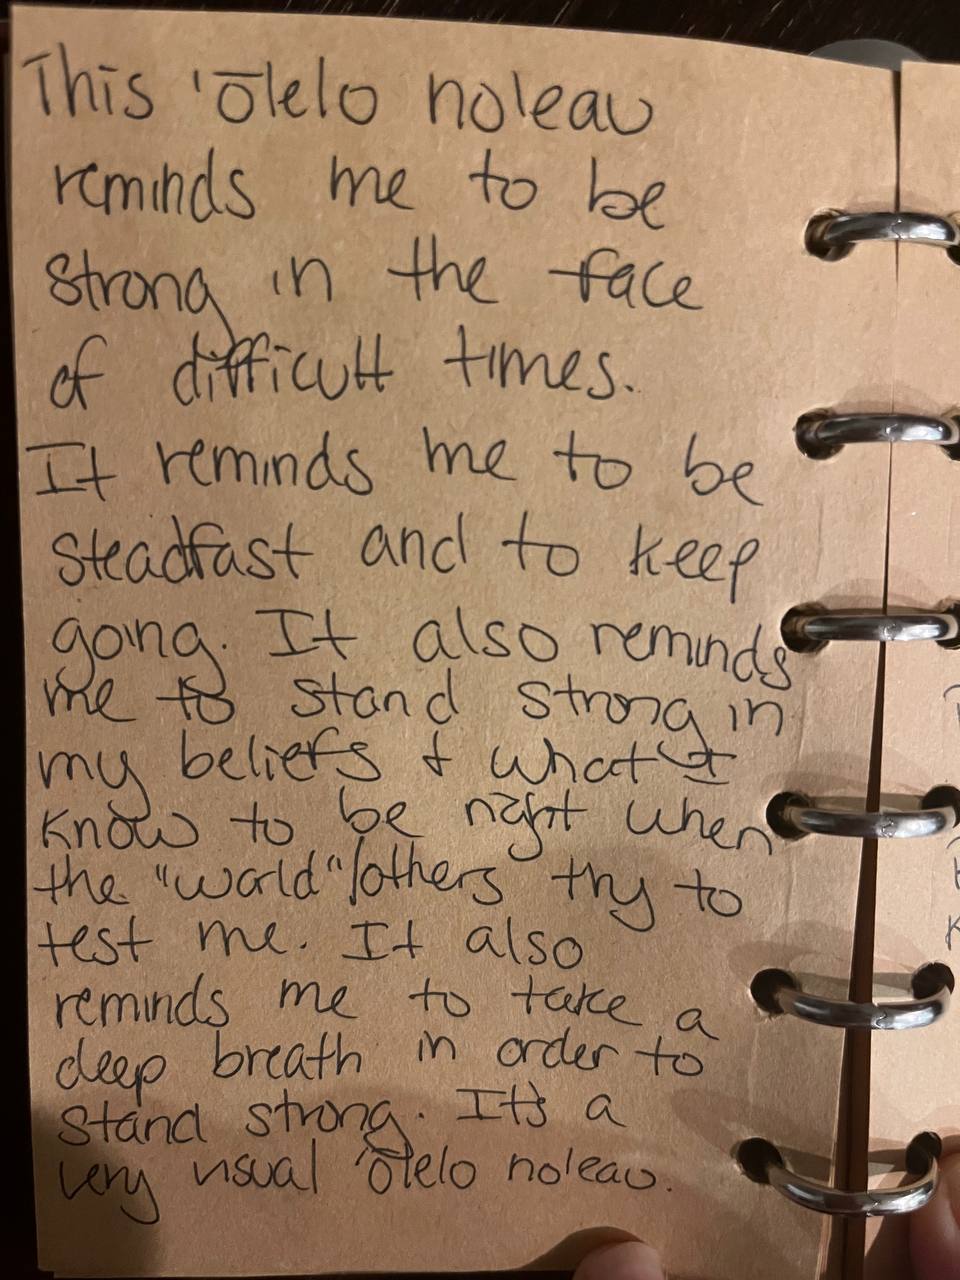 This 'ōlelo no'eau
reminds me to be
strong in the face
of difficult times.
It reminds me to be
steadfast and to keep
going. It also reminds
me to stand strong in
my beliefs & what I
know to be right when
the "world"/others try to
test me. It also
reminds me to take a
deep breath in order to
stand strong. It's a
very usual 'ōlelo no'eau.